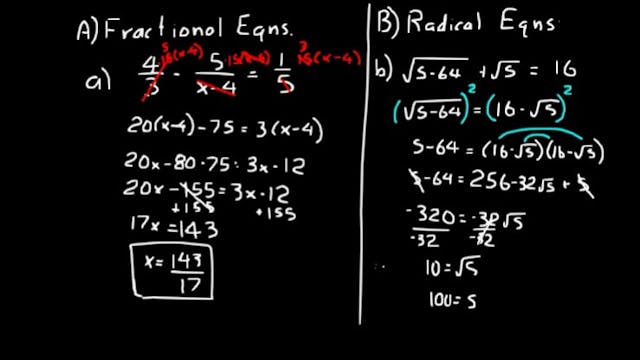 A) Fractional Eqns.
a) 4/3 15(x-4) - 5/(x-4) ·15(x-4) = 1/5 15(x-4)
5 3
20(x-4) - 75 = 3(x-4)
20x - 80 - 75 = 3x - 12
20x - 155 = 3x - 12
+155 +155
17x = 143
x = 143/17
B) Radical Eqns
b) √(s-64) + √s = 16
(√(s-64))² = (16 - √s)²
s-64 = (16-√s)(16-√s)
s-64 = 256 - 32√s + s
-320/-32 = -32/-32 √s
10 = √s
100 = s